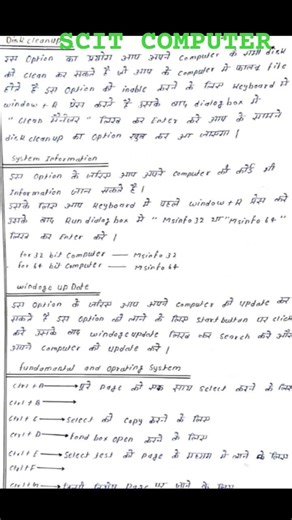 SCIT COMPUTER
Disk cleanup
इस option का प्रयोग आप अपने computer के सभी disk
को clean कर सकते हैं जो आप के computer में फालतू file
होते हैं इस option को inable करने के लिए keyboard में
window + R प्रेस करते हैं इसके बाद dialog box में
"clean मैनेजर" लिख कर Enter करे आप के सामने
disk cleanup का option खुल कर आ जाएगा।
System Information
इस option के जरिए आप अपने computer की कोई भी
Information जान सकते हैं।
इसके लिए आप keyboard में पहले window + R प्रेस करे
इसके बाद Run dialog box में "Msinfo 32 या "Msinfo 64"
लिख कर Enter करे।
for 32 bit computer — Msinfo 32
for 64 bit computer — Msinfo 64
windoge up Date
इस option के जरिए आप अपने computer को update कर
सकते हैं इस option को लाने के लिए start button पर click
करे उसके बाद windoge update लिख कर search करे और
अपने computer को update करे।
fundamantal and oprating System
ctrl + A → पूरे page को एक साथ select करने के लिए
ctrl + B →
ctrl + C → select को copy करने के लिए
ctrl + D → fond box open करने के लिए
ctrl + E → select text को page के मध्यम में लाने के लिए
ctrl + F →
पर जाने के लिए